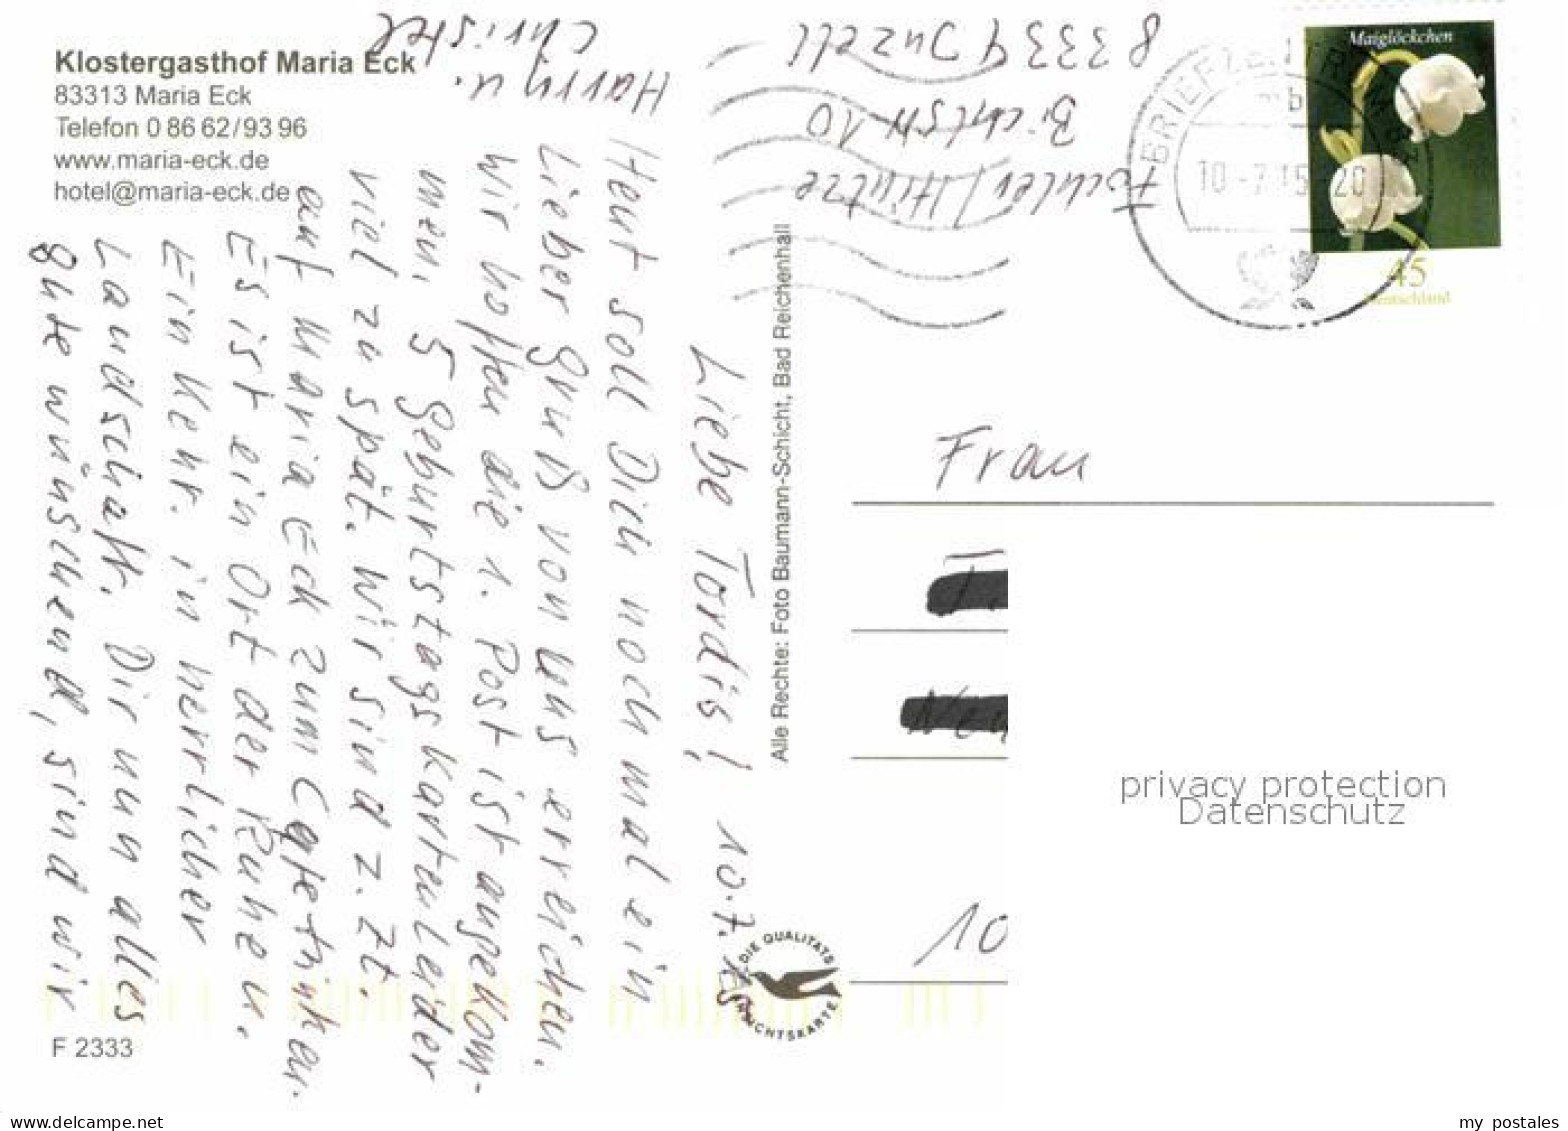 Klostergasthof Maria Eck
83313 Maria Eck
Telefon 0 86 62/93 96
www.maria-eck.de
hotel@maria-eck.de
F 2333
Liebe Tordis! 10.7.15
Heut soll Dich noch mal ein
lieber Gruß von uns erreichen.
Wir hoffen die 1. Post ist angekom-
men, 5 Geburtstagskarten leider
viel zu spät. Wir sind z. Zt.
auf Maria Eck zum Cafetrinken.
Es ist ein Ort der Ruhe u.
Einkehr. in herrlicher
Landschaft. Dir nun alles
gute wünschend, sind wir
Harry u.
Christel
Alle Rechte: Foto Baumann-Schicht, Bad Reichenhall
DIE QUALITÄTS
ANSICHTSKARTE
/Hintze
10
83334 Inzell
BRIEFZENTRUM
10-7.15-20
Maiglöckchen
45
Deutschland
Frau
10
privacy protection
Datenschutz
my postales